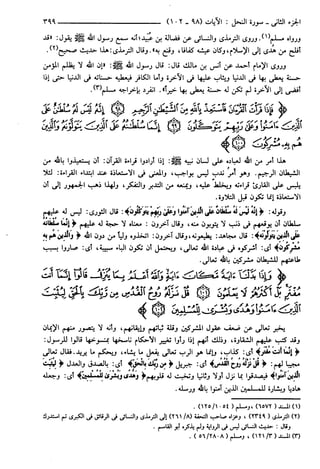 الجزء الثاني - سورة النحل : الآيات (٩٨ - ١٠٢) ٣٩٩
ورواه مسلم(١). وروى الترمذي والنسائي عن فضالة بن عبيد: أنه سمع رسول الله ﷺ يقول: «قد
أفلح من هُدي إلى الإسلام، وكان عيشه كفافا، وقنع به». وقال الترمذي: هذا حديث صحيح(٢).
وروى الإمام أحمد عن أنس بن مالك قال: قال رسول الله ﷺ: «إن الله لا يظلم المؤمن
حسنة يعطى بها في الدنيا ويثاب عليها في الآخرة وأما الكافر فيعطيه حسناته في الدنيا حتى إذا
أفضى إلى الآخرة لم تكن له حسنة يعطى بها خيراً». انفرد بإخراجه مسلم(٣).
فَإِذَا قَرَأْتَ الْقُرْآنَ فَاسْتَعِذْ بِاللَّهِ مِنَ الشَّيْطَانِ الرَّجِيمِ إِنَّهُ لَيْسَ لَهُ سُلْطَانٌ عَلَى
الَّذِينَ آمَنُوا وَعَلَى رَبِّهِمْ يَتَوَكَّلُونَ إِنَّمَا سُلْطَانُهُ عَلَى الَّذِينَ يَتَوَلَّوْنَهُ وَالَّذِينَ
هُم بِهِ مُشْرِكُونَ
هذا أمر من الله لعباده على لسان نبيه ﷺ: إذا أرادوا قراءة القرآن: أن يستعيذوا بالله من
الشيطان الرجيم. وهو أمر ندب ليس بواجب، والمعنى في الاستعاذة عند ابتداء القراءة: لئلا
يلبس على القارئ قراءته ويخلط عليه، ويمنعه من التدبر والتفكر، ولهذا ذهب الجمهور إلى أن
الاستعاذة إنما تكون قبل التلاوة.
وقوله: ﴿إنه ليس له سلطان على الذين آمنوا وعلى ربهم يتوكلون﴾: قال الثوري: ليس له عليهم
سلطان أن يوقعهم في ذنب لا يتوبون منه، وقال آخرون: معناه لا حجة له عليهم ﴿إنما سلطانه
على الذين يتولونه﴾: قال مجاهد: يطيعونه، وقال آخرون: اتخذوه وليا من دون الله ﴿والذين هم به
مشركون﴾ أي: أشركوه في عبادة الله تعالى، ويحتمل أن تكون الباء سببية، أي: صاروا بسبب
طاعتهم للشيطان مشركين بالله تعالى.
وَإِذَا بَدَّلْنَا آيَةً مَّكَانَ آيَةٍ وَاللَّهُ أَعْلَمُ بِمَا يُنَزِّلُ قَالُوا إِنَّمَا أَنتَ
مُفْتَرٍ بَلْ أَكْثَرُهُمْ لَا يَعْلَمُونَ قُلْ نَزَّلَهُ رُوحُ الْقُدُسِ مِن رَّبِّكَ بِالْحَقِّ لِيُثَبِّتَ الَّذِينَ
آمَنُوا وَهُدًى وَبُشْرَى لِلْمُسْلِمِينَ
يخبر تعالى عن ضعف عقول المشركين وقلة ثباتهم وإيقانهم، وأنه لا يتصور منهم الإيمان
وقد كتب عليهم الشقاوة، وذلك أنهم إذا رأوا تغيير الأحكام ناسخها بمنسوخها قالوا للرسول:
﴿إنما أنت مفتر﴾ أي: كذاب، وإنما هو الرب تعالى يفعل ما يشاء، ويحكم ما يريد. فقال تعالى
مجيبا لهم: ﴿قل نزله روح القدس﴾ أي: جبريل ﴿من ربك بالحق﴾ أي: بالصدق والعدل ﴿ليثبت
الذين آمنوا﴾ فيصدقوا بما نزل أولا وثانيا وتخبت له قلوبهم ﴿وهدى وبشرى للمسلمين﴾ أي: وجعله
هاديا وبشارة للمسلمين الذين آمنوا بالله ورسله.
(١) المسند (٦٥٧٢)، ومسلم (١٠٥٤/١٢٥).
(٢) الترمذي (٢٣٤٩)، وعزاه صاحب التحفة (٢٦١/٨) إلى الترمذي والنسائي في الرقائق في الكبرى ثم استدرك
وقال: حديث النسائي ليس في الرواية ولم يذكره أبو القاسم.
(٣) المسند (١٢١/٣)، ومسلم (٢٨٠٨/٥٦).